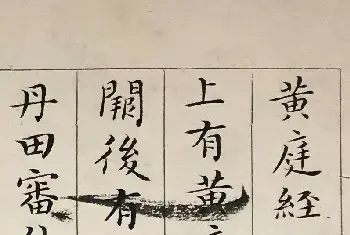 黄庭経
上有黄
闕後有
丹田審